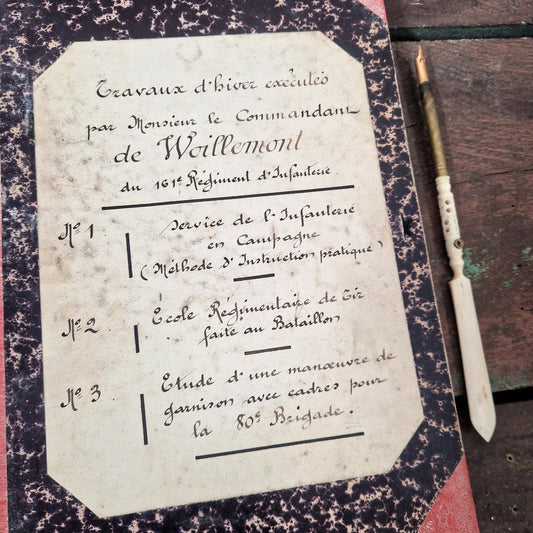 Travaux d'hiver exécutés
par Monsieur le Commandant
de Woillemont
du 161e Régiment d'Infanterie.
No 1 Service de l'Infanterie
en Campagne
(Méthode d'Instruction pratique)
No 2 École Régimentaire de Tir
faite au Bataillon
No 3 Etude d'une manœuvre de
garnison avec cadres pour
la 80e Brigade.